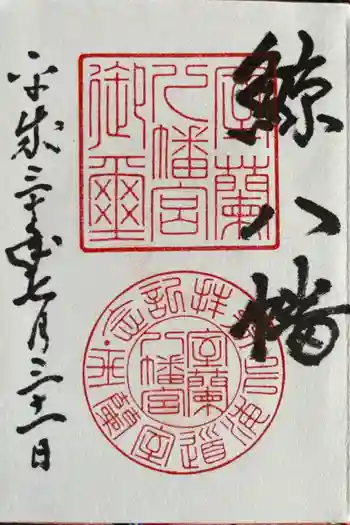 鯨八幡
室蘭
八幡宮
御璽
参拝記念
北海道室蘭市
室蘭
八幡宮
平成三十年七月三十一日